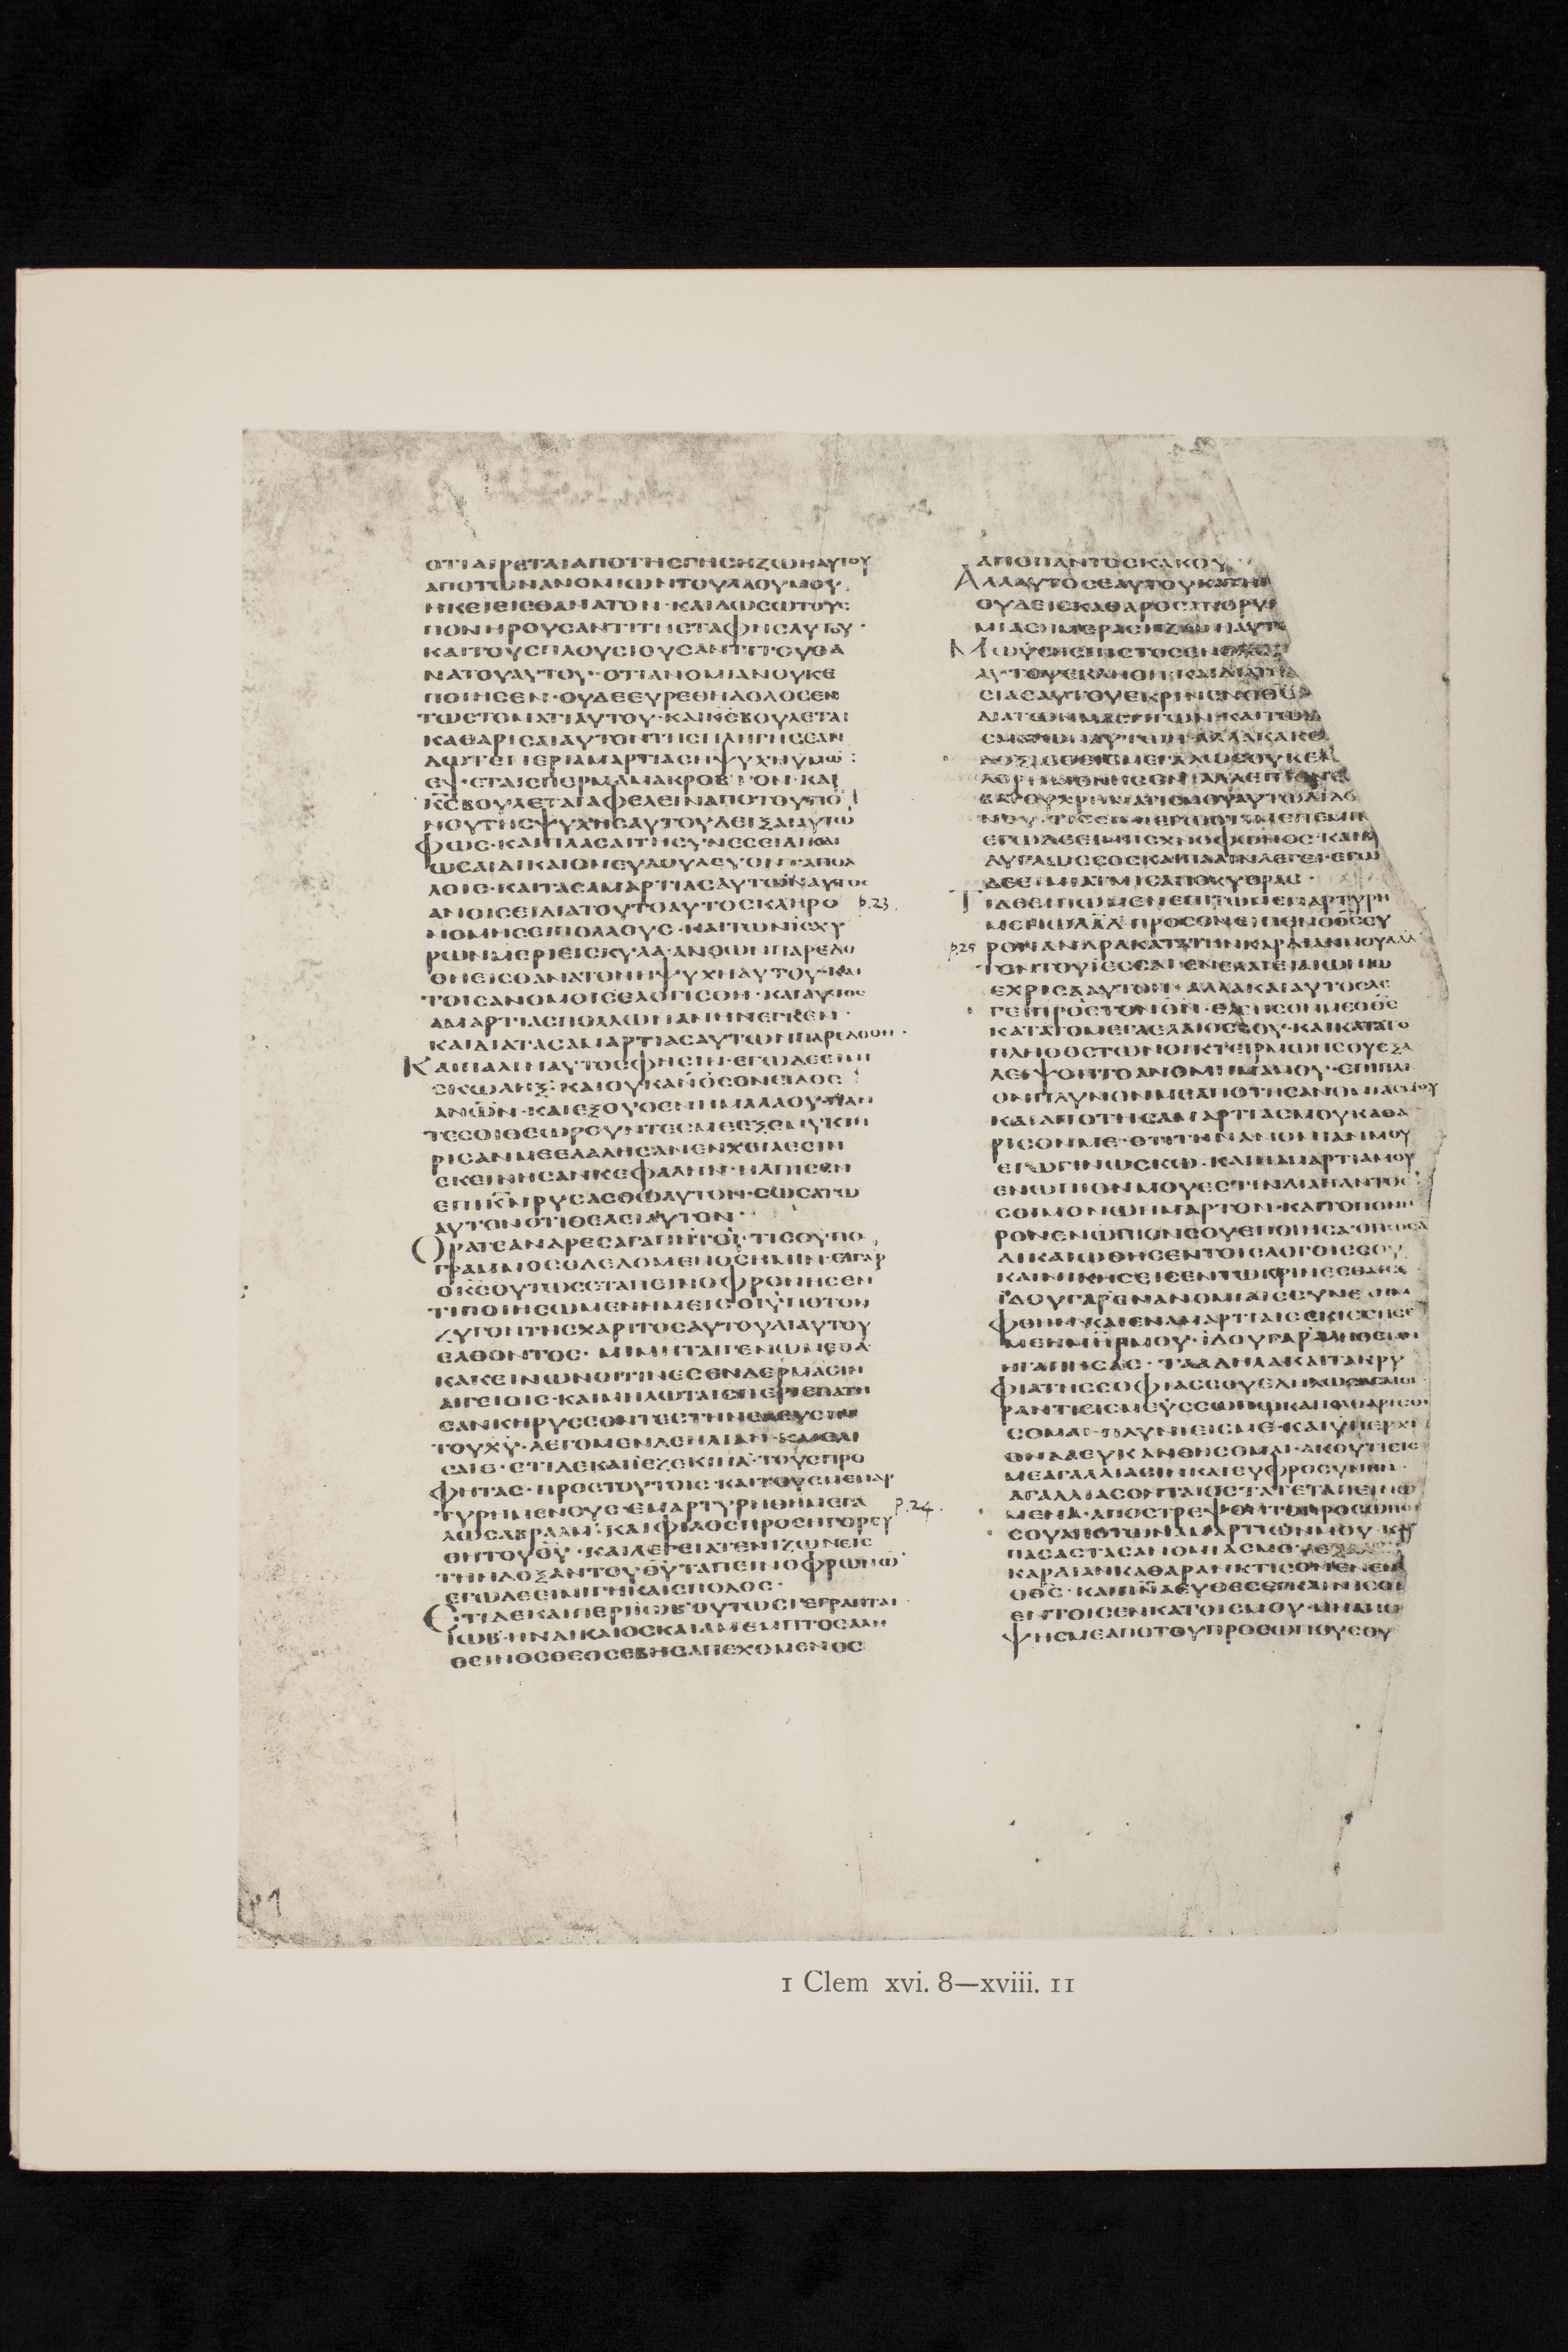 ΟΤΙΑΙΡΕΤΑΙΑΠΟΤΗϹΓΗϹΗΖΩΗΑΥΤΟΥ
ΑΠΟΤΩΝΑΝΟΜΙΩΝΤΟΥΛΑΟΥΜΟΥ
ΗΚΕΙΕΙϹΘΑΝΑΤΟΝ·ΚΑΙΔΩϹΩΤΟΥϹ
ΠΟΝΗΡΟΥϹΑΝΤΙΤΗϹΤΑΦΗϹΑΥΤΟΥ·
ΚΑΙΤΟΥϹΠΛΟΥϹΙΟΥϹΑΝΤΙΤΟΥΘΑ
ΝΑΤΟΥΑΥΤΟΥ·ΟΤΙΑΝΟΜΙΑΝΟΥΚΕ
ΠΟΙΗϹΕΝ·ΟΥΔΕΕΥΡΕΘΗΔΟΛΟϹΕΝ
ΤΩϹΤΟΜΑΤΙΑΥΤΟΥ·ΚΑΙΚ̅Ϲ̅ΒΟΥΛΕΤΑΙ
ΚΑΘΑΡΙϹΑΙΑΥΤΟΝΤΗϹΠΛΗΓΗϹΕΑΝ
ΔΩΤΕΠΕΡΙΑΜΑΡΤΙΑϹΗΨΥΧΗΥΜΩ̅
ΕΨ·ΕΤΑΙϹΠΕΡΜΑΜΑΚΡΟΒΙΟΝ·ΚΑΙ
Κ̅Ϲ̅ΒΟΥΛΕΤΑΙΑΦΕΛΕΙΝΑΠΟΤΟΥΠΟ
ΝΟΥΤΗϹΨΥΧΗϹΑΥΤΟΥΔΕΙΞΑΙΑΥΤΩ
ΦΩϹ·ΚΑΙΠΛΑϹΑΙΤΗϹΥΝΕϹΕΙΔΙΚΑΙ
ΩϹΑΙΔΙΚΑΙΟΝΕΥΔΟΥΛΕΥΟΝΤΑΠΟΛ
ΛΟΙϹ·ΚΑΙΤΑϹΑΜΑΡΤΙΑϹΑΥΤΩΝΑΥΤΟϹ
ΑΝΟΙϹΕΙΔΙΑΤΟΥΤΟΑΥΤΟϹΚΛΗΡΟ p.23.
ΝΟΜΗϹΕΙΠΟΛΛΟΥϹ·ΚΑΙΤΩΝΙϹΧΥ
ΡΩΝΜΕΡΙΕΙϹΚΥΛΑ·ΑΝΘΩΝΠΑΡΕΔΟ
ΘΗΕΙϹΘΑΝΑΤΟΝΗΨΥΧΗΑΥΤΟΥ·ΚΑΙ
ΤΟΙϹΑΝΟΜΟΙϹΕΛΟΓΙϹΘΗ·ΚΑΙΑΥΤΟϹ
ΑΜΑΡΤΙΑϹΠΟΛΛΩΝΑΝΗΝΕΓΚΕΝ·
ΚΑΙΔΙΑΤΑϹΑΜΑΡΤΙΑϹΑΥΤΩΝΠΑΡΕΔΟΘΗ·
ΚΑΙΠΑΛΙΝΑΥΤΟϹΦΗϹΙΝ·ΕΓΩΔΕΕΙΜΙ
ϹΚΩΛΗΞ·ΚΑΙΟΥΚΑΝΟϹΟΝΕΙΔΟϹ
ΑΝΩ̅Ν̅·ΚΑΙΕΞΟΥΘΕΝΗΜΑΛΑΟΥ·ΠΑΝ
ΤΕϹΟΙΘΕΩΡΟΥΝΤΕϹΜΕΕΞΕΜΥΚΤΗ
ΡΙϹΑΝΜΕΕΛΑΛΗϹΑΝΕΝΧΕΙΛΕϹΙΝ
ΕΚΕΙΝΗϹΑΝΚΕΦΑΛΗΝ·ΗΛΠΙϹΕΝ
ΕΠΙΚ̅Ν̅ΡΥϹΑϹΘΩΑΥΤΟΝ·ϹΩϹΑΤΩ
ΑΥΤΟΝΟΤΙΘΕΛΕΙΑΥΤΟΝ·
ΟΡΑΤΕΑΝΔΡΕϹΑΓΑΠΗΤΟΙ·ΤΙϹΟΥΠΟ
ΓΡΑΜΜΟϹΟΔΕΔΟΜΕΝΟϹΗΜΙΝ·ΕΙΓΑΡ
ΟΚ̅Ϲ̅ΟΥΤΩϹΕΤΑΠΕΙΝΟΦΡΟΝΗϹΕΝ
ΤΙΠΟΙΗϹΩΜΕΝΗΜΕΙϹΟΙΫΠΟΤΟΝ
ΖΥΓΟΝΤΗϹΧΑΡΙΤΟϹΑΥΤΟΥΔΙΑΥΤΟΥ
ΕΛΘΟΝΤΟϹ·ΜΙΜΗΤΑΙΓΕΝΩΜΕΘΑ
ΚΑΚΕΙΝΩΝΟΙΤΙΝΕϹΕΝΔΕΡΜΑϹΙΝ
ΑΙΓΕΙΟΙϹ·ΚΑΙΜΗΛΩΤΑΙϹΠΕΡΙΕΠΑΤΗ
ϹΑΝΚΗΡΥϹϹΟΝΤΕϹΤΗΝΕΛΕΥϹΙΝ
ΤΟΥΧ̅Υ̅·ΛΕΓΟΜΕΝΔΕΗΛΙΑΝ·ΚΑΙΕΛΙ
ϹΑΙΕ·ΕΤΙΔΕΚΑΙΙΕΖΕΚΙΗΛ·ΤΟΥϹΠΡΟ
ΦΗΤΑϹ·ΠΡΟϹΤΟΥΤΟΙϹ·ΚΑΙΤΟΥϹΜΕΜΑΡ
ΤΥΡΗΜΕΝΟΥϹ·ΕΜΑΡΤΥΡΗΘΗΜΕΓΑ p.24.
ΛΩϹΑΒΡΑΑΜ·ΚΑΙΦΙΛΟϹΠΡΟϹΗΓΟΡΕΥ
ΘΗΤΟΥΘ̅Υ̅·ΚΑΙΛΕΓΕΙΑΤΕΝΙΖΩΝΕΙϹ
ΤΗΝΔΟΞΑΝΤΟΥΘ̅Υ̅ΤΑΠΕΙΝΟΦΡΩΝΩ̅
ΕΓΩΔΕΕΙΜΙΓΗΚΑΙϹΠΟΔΟϹ·
ΕΤΙΔΕΚΑΙΠΕΡΙΙΩΒ·ΟΥΤΩϹΓΕΓΡΑΠΤΑΙ·
ΙΩΒ·ΗΝΔΙΚΑΙΟϹΚΑΙΑΜΕΜΠΤΟϹΑΛΗ
ΘΕΙΝΟϹΘΕΟϹΕΒΗϹΑΠΕΧΟΜΕΝΟϹ
ΑΠΟΠΑΝΤΟϹΚΑΚΟΥ
ΑΛΛΑΥΤΟϹΕΑΥΤΟΥΚΑΤΗΓ
ΟΥΔΕΙϹΚΑΘΑΡΟϹΑΠΟΡΥΠ
ΜΙΑϹΗΜΕΡΑϹΗΖΩΗΑΥΤΟ
ΜΩΫϹΗϹΠΙϹΤΟϹΕΝΟΛΩ
ΑΥΤΟΥΕΚΛΗΘΗ·ΚΑΙΔΙΑΤΗ
ϹΙΑϹΑΥΤΟΥΕΚΡΙΝΕΝΟΘ̅Ϲ̅Α
ΔΙΑΤΩΝΜΑϹΤΙΓΩΝ·ΚΑΙΤΩΝ
ΑΥΤΩΝ·ΑΛΛΑΚΑΚΕ
ΔΟΞΑϹΘΕΙϹΜΕΓΑΛΩϹΟΥΚΕ
ΝΟΥ·ΤΙϹΕΙΜΙΕΓΩΟΤΙΜΕΠΕΜΠ
ΕΓΩΔΕΕΙΜΙΙϹΧΝΟΦΩΝΟϹ·ΚΑΙΒ
ΔΥΓΛΩϹϹΟϹΚΑΙΠΑΛΙΝΛΕΓΕΙ·ΕΓΩ
ΔΕΕΙΜΙΑΤΜΙϹΑΠΟΚΥΘΡΑϹ·
ΤΙΔΕΕΙΠΩΜΕΝΕΠΙΤΩΜΕΜΑΡΤΥΡΗ
ΜΕΝΩΔΑ̅Δ̅·ΠΡΟϹΟΝΕΙΠΕΝΟΘ̅Ϲ̅ΕΥ
p.25 ΡΟΝΑΝΔΡΑΚΑΤΑΤΗΝΚΑΡΔΙΑΝΜΟΥΔΑΔ
ΤΟΝΤΟΥΙΕϹϹΑΙ·ΕΝΕΛΑΙΕΙΑΙΩΝΙΩ
ΕΧΡΙϹΑΑΥΤΟΝ·ΑΛΛΑΚΑΙΑΥΤΟϹΛΕ
ΓΕΙΠΡΟϹΤΟΝΘ̅Ν̅·ΕΛΕΗϹΟΝΜΕΟΘ̅Ϲ̅
ΚΑΤΑΤΟΜΕΓΑΕΛΑΙΟϹϹΟΥ·ΚΑΙΚΑΤΑΤΟ
ΠΛΗΘΟϹΤΩΝΟΙΚΤΕΙΡΜΩΝϹΟΥΕΞΑ
ΛΕΙΨΟΝΤΟΑΝΟΜΗΜΑΜΟΥ·ΕΠΙΠΛΙ
ΟΝΠΛΥΝΟΝΜΕΑΠΟΤΗϹΑΝΟΜΙΑϹΜΟΥ
ΚΑΙΑΠΟΤΗϹΑΜΑΡΤΙΑϹΜΟΥΚΑΘΑ
ΡΙϹΟΝΜΕ·ΟΤΙΤΗΝΑΝΟΜΙΑΝΜΟΥ
ΕΓΩΓΙΝΩϹΚΩ·ΚΑΙΗΑΜΑΡΤΙΑΜΟΥ
ΕΝΩΠΙΟΝΜΟΥΕϹΤΙΝΔΙΑΠΑΝΤΟϹ
ϹΟΙΜΟΝΩΗΜΑΡΤΟΝ·ΚΑΙΤΟΠΟΝΗ
ΡΟΝΕΝΩΠΙΟΝϹΟΥΕΠΟΙΗϹΑ·ΟΠΩϹΑ
ΔΙΚΑΙΩΘΗϹΕΝΤΟΙϹΛΟΓΟΙϹϹΟΥ
ΚΑΙΝΙΚΗϹΕΙϹΕΝΤΩΚΡΙΝΕϹΘΑΙϹΕ
ΪΔΟΥΓΑΡΕΝΑΝΟΜΙΑΙϹϹΥΝΕΛΗΜ
ΦΘΗΝ·ΚΑΙΕΝΑΜΑΡΤΙΑΙϹΕΚΙϹϹΗϹΕ
ΜΕΗΜ̅Η̅Ρ̅ΜΟΥ·ΪΔΟΥΓΑΡΑΛΗΘΕΙΑΝ
ΗΓΑΠΗϹΑϹ·ΤΑΑΔΗΛΑΚΑΙΤΑΚΡΥ
ΦΙΑΤΗϹϹΟΦΙΑϹϹΟΥΕΔΗΛΩϹΑϹΜΟΙ
ΡΑΝΤΙΕΙϹΜΕΥϹϹΩΠΩΚΑΙΚΑΘΑΡΙϹΘΗ
ϹΟΜΑΙ·ΠΛΥΝΙΕΙϹΜΕ·ΚΑΙΫΠΕΡΧΙ
ΟΝΑΛΕΥΚΑΝΘΗϹΟΜΑΙ·ΑΚΟΥΤΙΕΙϹ
ΜΕΑΓΑΛΛΙΑϹΙΝΚΑΙΕΥΦΡΟϹΥΝΗΝ·
ΑΓΑΛΛΙΑϹΟΝΤΑΙΟϹΤΑΤΕΤΑΠΕΙΝΩ
ΜΕΝΑ·ΑΠΟϹΤΡΕΨΟΝΤΟΠΡΟϹΩΠΟ
ϹΟΥΑΠΟΤΩΝΑΜΑΡΤΙΩΝΜΟΥ·Κ
ΠΑϹΑϹΤΑϹΑΝΟΜΙΑϹΜΟΥΕΞΑ
ΚΑΡΔΙΑΝΚΑΘΑΡΑΝΚΤΙϹΟΝΕΝΕΜ
ΟΘ̅Ϲ̅·ΚΑΙΠ̅Ν̅Α̅ΕΥΘΕϹΕΓΚΑΙΝΙϹΟΝ
ΕΝΤΟΙϹΕΝΚΑΤΟΙϹΜΟΥ·ΜΗΑΠΟ
ΨΗϹΜΕΑΠΟΤΟΥΠΡΟϹΩΠΟΥϹΟΥ
1 Clem xvi. 8—xviii. 11